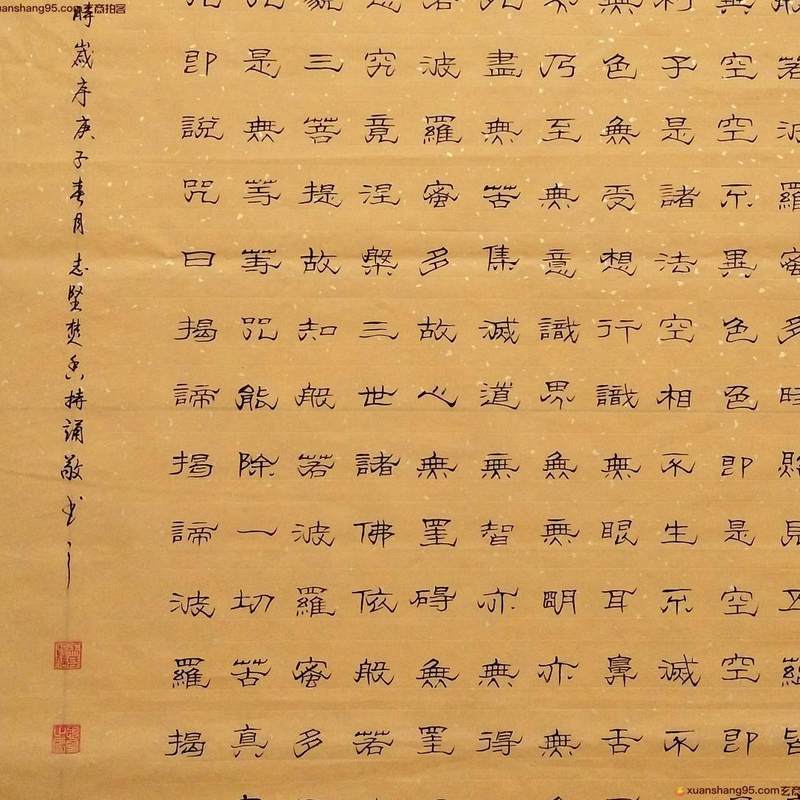 xuanshang95.com玄商拍客
若波羅蜜多時照見五蘊皆
空空不異色色即是空空即
利子是諸法空相不生不滅不
無色無受想行識無眼耳鼻舌
乃至無意識界無無明亦無
死盡無苦集滅道無智亦無得
若波羅蜜多故心無罣碍無罣
究竟涅槃三世諸佛依般若
藐三菩提故知般若波羅蜜多
咒是無等等咒能除一切苦真
咒即說咒曰揭諦揭諦波羅揭
時歲序庚子春月志堅焚香持誦敬书之
xuanshang95.com玄商